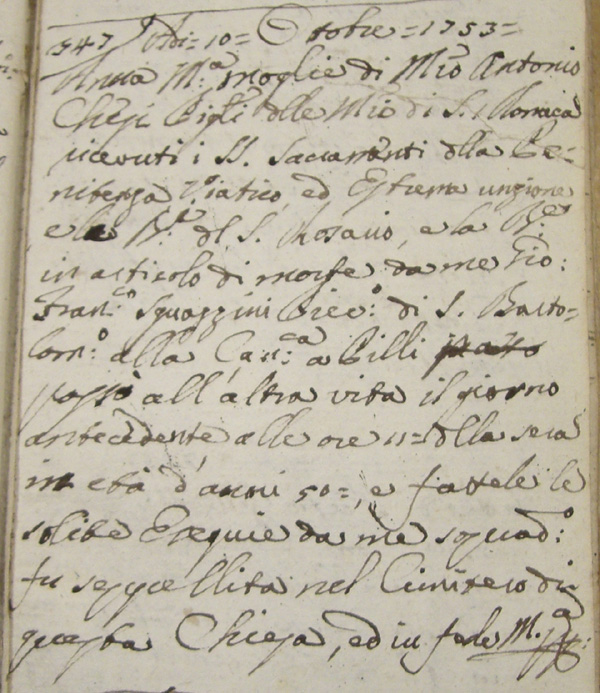 347 Adi = 10 = Ottobre = 1753 =
Anna M.a moglie di Mro Antonio
Chesi Figli dlle Mro di S.
ricevuti i SS. Sacramenti dlla Pe=
nitenza Viatico, ed Estrema unzione
e la B.e dl S. Rosario, e la B.e
in articolo di morte da me Gio:
Fran.co Squazzini Piev.o di S. Barto=
lom.o alla Can.ca a Pilli
passò all'altra vita il giorno
antecedente alle ore 11= dlla sera
in età d'anni 50=, e fattele le
solite Esequie da me soprad.o
fu seppellita nel Cimitero di
questa Chiesa, ed in fede M.